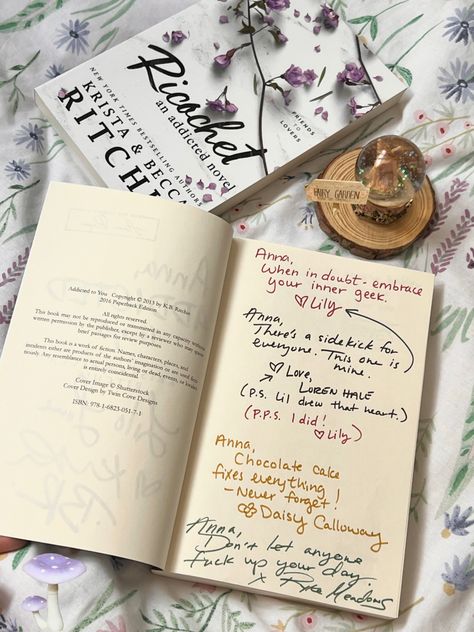 Ricochet
an addicted novel
NEW YORK TIMES BESTSELLING AUTHORS
KRISTA & BECCA
RITCHIE
FRIENDS
TO
LOVERS
FAIRY GARDEN
Addicted to You Copyright © 2013 by K.B. Ritchie
2016 Paperback Edition
All rights reserved.
This book may not be reproduced or transmitted in any capacity without
written permission by the publisher, except by a reviewer who may quote
brief passages for review purposes.
This book is a work of fiction. Names, characters, places, and
incidents either are products of the authors' imagination or are used
fictitiously. Any resemblance to actual persons, living or dead, events, or locales
is entirely coincidental.
Cover Image © Shutterstock
Cover Design by Twin Cove Designs
ISBN: 978-1-6823-051-7-1
Anna,
When in doubt - embrace
your inner geek.
♡ Lily
Anna,
There's a sidekick for
everyone. This one is
mine.
♡ Love,
LOREN HALE
(P.S. Lil drew that heart.)
(P.P.S. I did!
♡ Lily)
Anna,
Chocolate cake
fixes everything!
- Never forget!
Daisy Calloway
Anna,
Don't let anyone
fuck up your day.
x Ryke Meadows